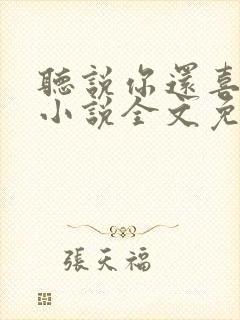 聽說你還喜
小說全文免
張天福